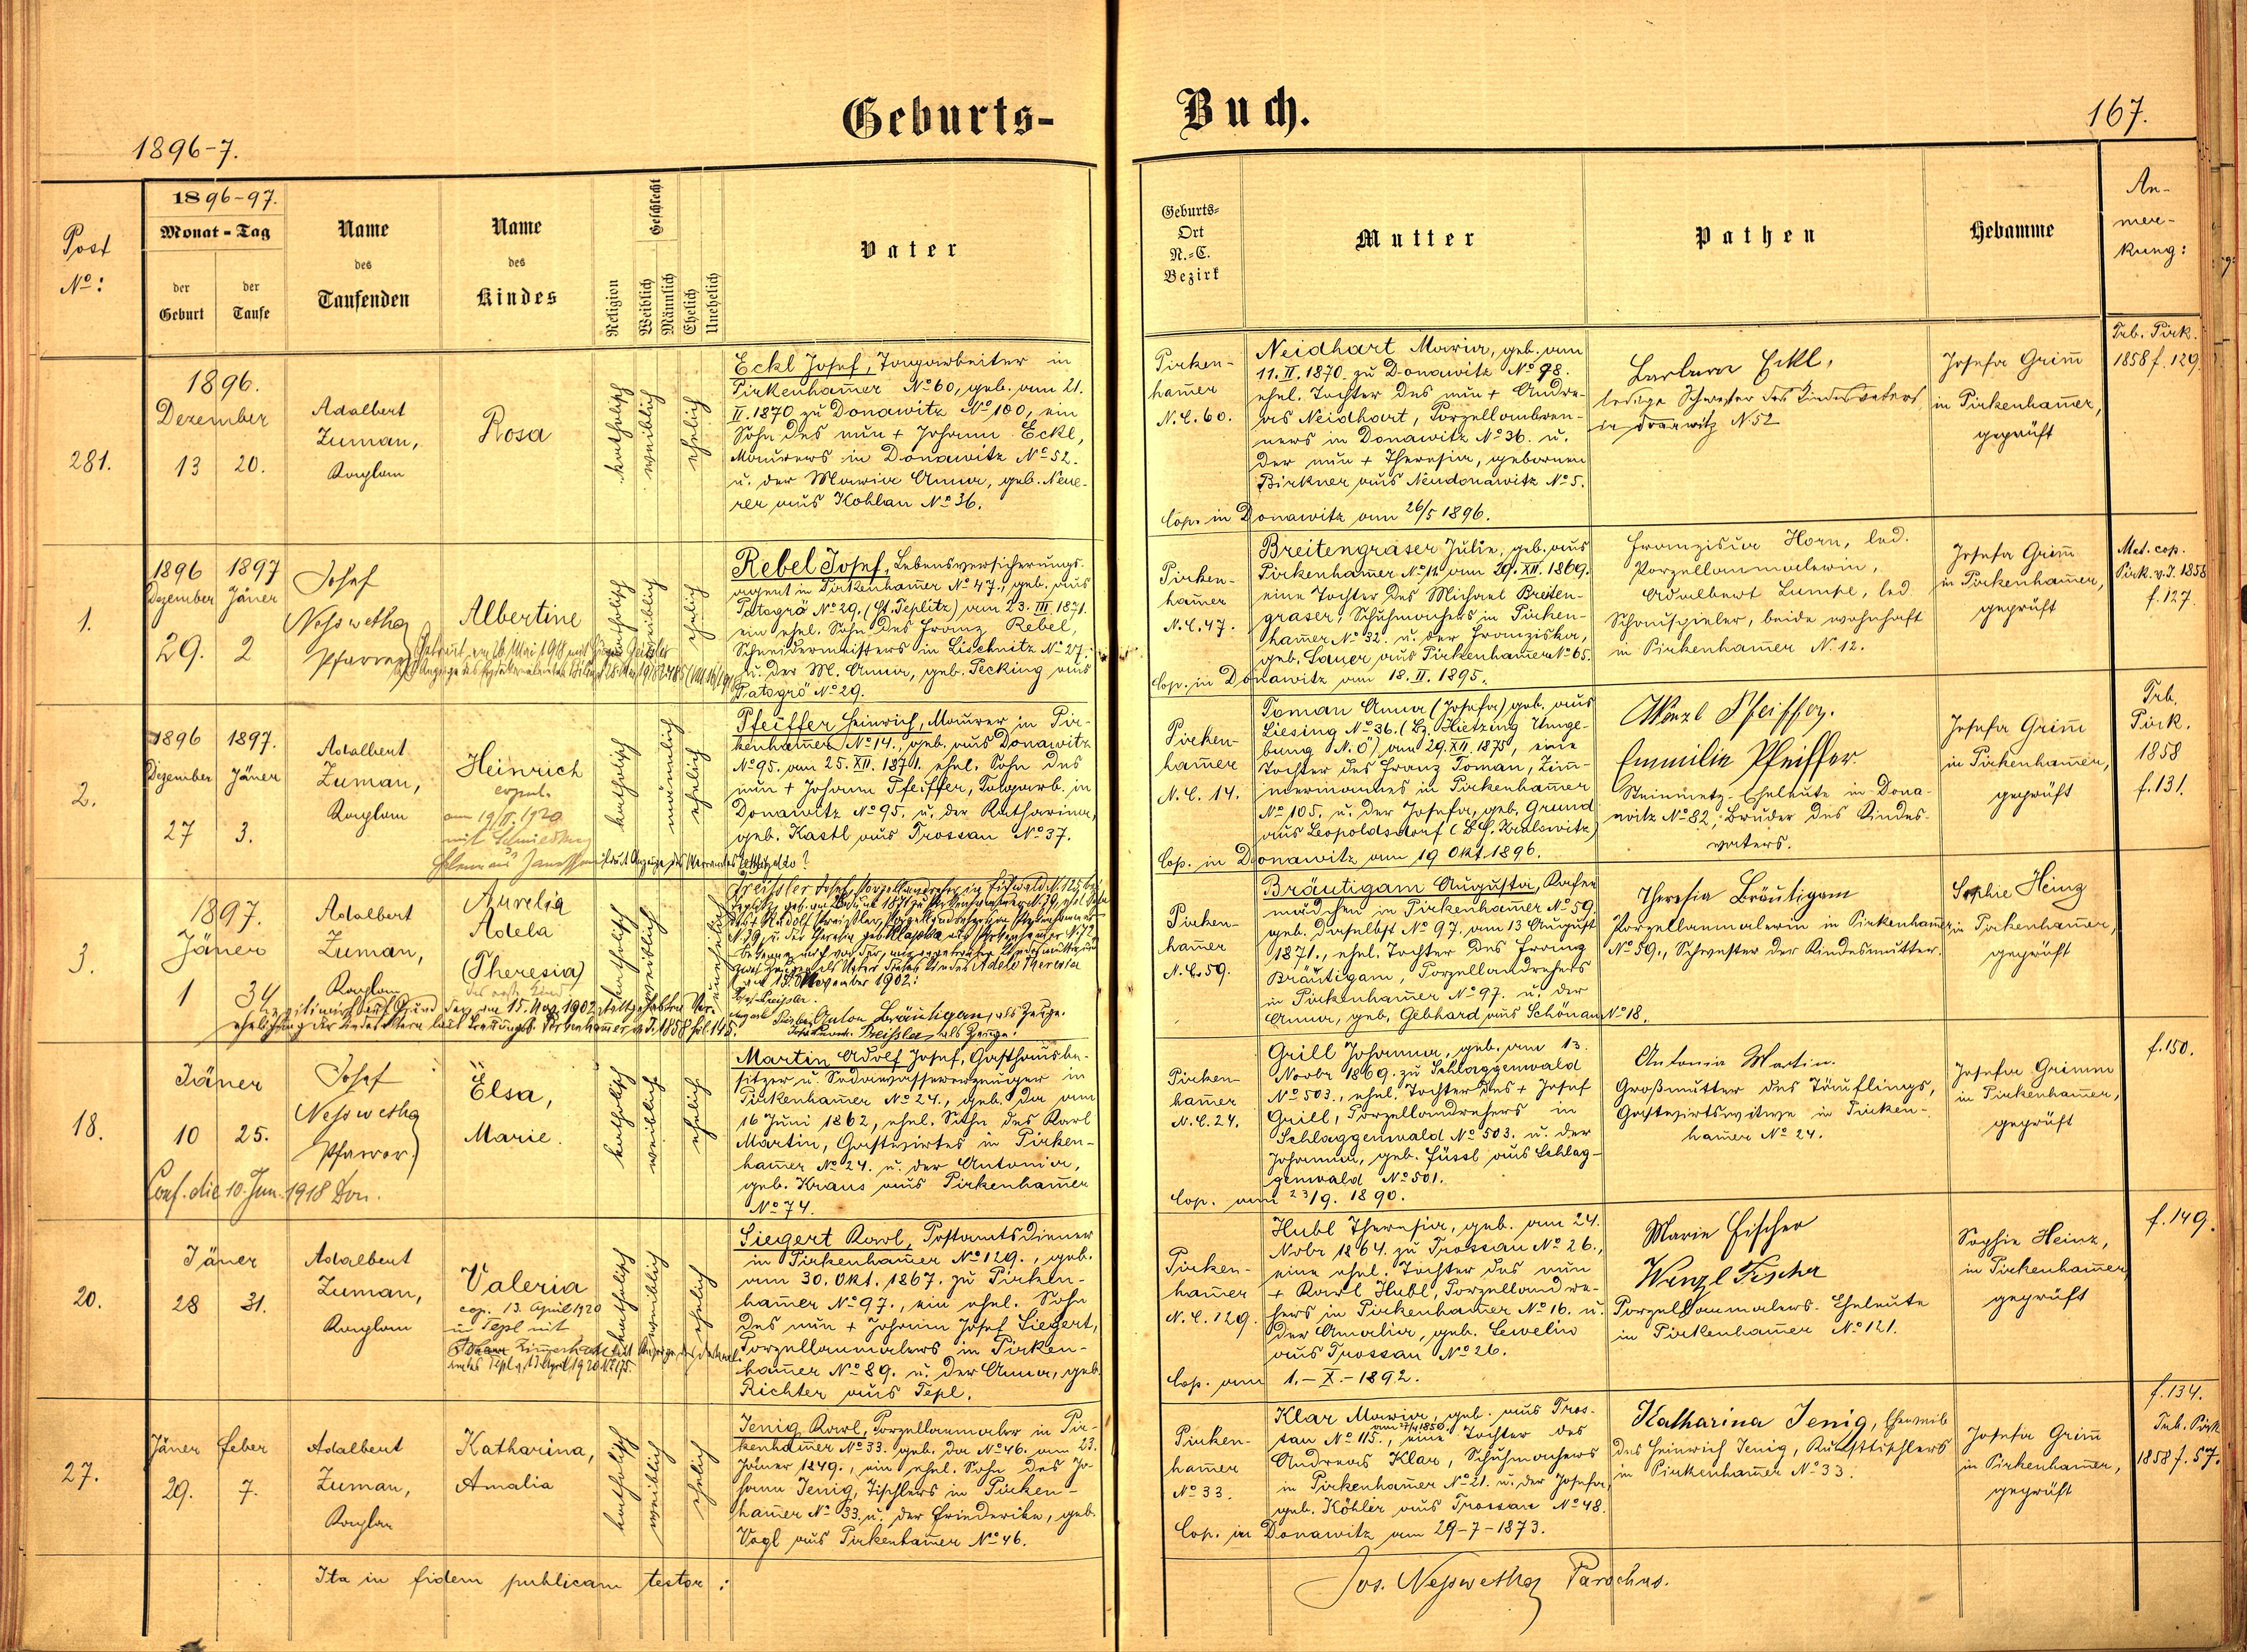 Geburts-
Buch.
167.
1896-7.
Post
No:
1896-97.
Monat - Tag
der
Geburt
der
Taufe
Name
des
Taufenden
Name
des
Kindes
Religion
Geschlecht
Weiblich
Männlich
Ehelich
Unehelich
Vater
Geburts-
Ort
N.-C.
Bezirk
Mutter
Pathen
Hebamme
An-
mer-
kung:
281.
1896.
Dezember
13 20.
Adalbert
Zuman,
Kaplan
Rosa
katholisch
weiblich
ehelich
Eckl Josef, Tagarbeiter in
Pirkenham̄er No 60, geb. am 21.
II. 1870 zu Donawitz No 100, ein
Sohn des nun + Johann Eckl,
Maurers in Donawitz No 52.
u. der Maria Anna, geb. Neue-
rer aus Kohlau No 36.
Pirken-
ham̄er
N.C. 60.
Neidhart Maria, geb. am
11. II. 1870. zu Donawitz No 98.
ehel. Tochter des nun + Andre-
as Neidhart, Porzellanbren-
ners in Donawitz No 36. u.
der nun + Theresia, gebornen
Birkner aus Neudonawitz No 5.
Cop. in Donawitz am 26/5 1896.
Barbara Eckl,
ledige Schwester des Kindesvaters
in Donawitz N 52
Josefa Grim̄
in Pirkenham̄er,
geprüft
Trb. Pirk.
1858 f. 129.
1.
1896 1897
Dezember Jäner
29. 2
Josef
Nesswetha
Pfarrer
Albertine
katholisch
weiblich
ehelich
Rebel Josef, Lebensversicherungs-
agent in Pirkenham̄er No 47., geb. aus
Patogrö No 29. (St. Teplitz) am 23. III 1871.
ein ehel. Sohn des Franz Rebel,
Schneidermeisters in Lischnitz No 27.
u. der M. Anna, geb. Pecking aus
Patogrö No 29.
Pirken-
ham̄er
N.C. 47.
Breitengraser Julie, geb. aus
Pirkenham̄er No 12 am 29. XII. 1869.
eine Tochter des Michael Breiten-
graser, Schuhmachers in Pirken-
ham̄er No 32. u. der Franziska,
geb. Lauer aus Pirkenham̄er No 65.
Cop. in Donawitz am 18. II. 1895.
Franziska Horn, led.
Porzellanmalerin,
Adalbert Lumpe, led.
Schauspieler, beide wohnhaft
in Pirkenham̄er N. 12.
Josefa Grim̄
in Pirkenham̄er,
geprüft
Mat. cop.
Pirk. v. J. 1858
f. 127.
2.
1896 1897.
Dezember Jäner
27 3.
Adalbert
Zuman,
Kaplan
Heinrich
copul.
am 19/II. 1920
mit
katholisch
männlich
ehelich
Pfeiffer Heinrich, Maurer in Pir-
kenham̄er No 14., geb. aus Donawitz
No 95. am 25. XII. 1871. ehel. Sohn des
nun + Johann Pfeiffer, Tagarb. in
Donawitz No 95. u. der Katharina,
geb. Kastl aus Trossau No 37.
Pirken-
ham̄er
N.C. 14.
Toman Anna (Josefa) geb. aus
Liesing No 36. (Bz. Hietzing Umge-
bung N.Ö) am 29. XII. 1875, eine
Tochter des Franz Toman, Zim̄-
mermannes in Pirkenham̄er
No 105. u. der Josefa, geb. Grund
aus Leopoldsdorf
Cop. in Donawitz am 19 Okt. 1896.
Wenzl Pfeiffer.
Emmilie Pfeiffer
Steinmetz-Eheleute in Dona-
witz No 82, Bruder des Kindes-
vaters.
Josefa Grim̄
in Pirkenham̄er,
geprüft
Trb.
Pirk.
1858
f. 131.
3.
1897.
Jäner
1 3
Adalbert
Zuman,
Kaplan
Aurelia
Adela
(Theresia)
katholisch
weiblich
unehelich
am 15. November 1902:
Anton Bräutigam, als Zeuge.
Preißler als Zeuge.
Pirken-
ham̄er
N.C. 59.
Bräutigam Augusta,
mädchen in Pirkenham̄er No 59
geb. daselbst No 97. am 13 August
1871., ehel. Tochter des Franz
Bräutigam, Porzellandrehers
in Pirkenham̄er No 97. u. der
Anna, geb. Gebhard aus Schönau No 18.
Theresia Bräutigam
Porzellanmalerin in Pirkenham̄er
No 59., Schwester der Kindesmutter.
Sophie Heinz
in Pirkenham̄er,
geprüft
18.
Jäner
10 25.
Josef
Nesswetha
Pfarrer
Elsa,
Marie.
Conf. die 10. Jun. 1918 Don.
katholisch
weiblich
ehelich
Martin Adolf Josef, Gasthausbe-
sitzer u. Sodawassererzeuger in
Pirkenham̄er No 24., geb. da am
16 Juni 1862, ehel. Sohn des Karl
Martin, Gastwirtes in Pirken-
ham̄er No 24. u. der Antonia,
geb. Kraus aus Pirkenham̄er
No 74.
Pirken-
ham̄er
N.C. 24.
Grill Johanna, geb. am 13.
Novbr 1869. zu Schlaggenwald
No 503., ehel. Tochter des + Josef
Grill, Porzellandrehers in
Schlaggenwald No 503. u. der
Johanna, geb. Füssl aus Schlag-
genwald No 501.
Cop. am 23/9. 1890.
Antonia Martin.
Großmutter des Täuflings,
Gastwirtswitwe in Pirken-
ham̄er No 24.
Josefa Grimm
in Pirkenham̄er,
geprüft
f. 150.
20.
Jäner
28 31.
Adalbert
Zuman,
Kaplan
Valeria
cop. 13. April 1920
in Tepl mit
katholisch
weiblich
ehelich
Siegert Karl, Postamtsdiener
in Pirkenham̄er No 129., geb.
am 30. Okt. 1867. zu Pirken-
ham̄er No 97., ein ehel. Sohn
des nun + Johann Josef Siegert,
Porzellanmalers in Pirken-
ham̄er No 89. u. der Anna, geb.
Richter aus Tepl.
Pirken-
ham̄er
N.C. 129.
Hubl Theresia, geb. am 24.
Nobr 1864. zu Trossau No 26.,
eine ehel. Tochter des nun
+ Karl Hubl, Porzellandre-
hers in Pirkenham̄er No 16. u.
der Amalia, geb. Lewelin
aus Trossau No 26.
Cop. am 1.-X.-1892.
Marie Fischer
Wenzl Fischer
Porzellanmalers-Eheleute
in Pirkenham̄er No 121.
Sophie Heinz,
in Pirkenham̄er
geprüft
f. 149.
27.
Jäner Feber
29. 7.
Adalbert
Zuman,
Kaplan
Katharina,
Amalia
katholisch
weiblich
ehelich
Jenig Karl, Porzellanmaler in Pir-
kenham̄er No 33. geb. da No 46. am 23.
Jäner 1849., ein ehel. Sohn des Jo-
hann Jenig, Tischlers in Pirken-
ham̄er No 33. u. der Friederike, geb.
Vogl aus Pirkenham̄er No 46.
Pirken-
ham̄er
No 33.
Klar Maria, geb. aus Tros-
sau No 115., eine Tochter des
Andreas Klar, Schuhmachers
in Pirkenham̄er No 21. u. der Josefa,
geb. Köhler aus Trossau No 48.
Cop. in Donawitz am 29-7-1873.
Katharina Jenig, Eheweib
des Heinrich Jenig, Kunsttischlers
in Pirkenham̄er No 33.
Josefa Grim̄
in Pirkenham̄er,
geprüft
f. 134.
Trb. Pirk
1858 f. 57.
Ita in fidem publicam testor:
Jos. Nesswetha Parochus.